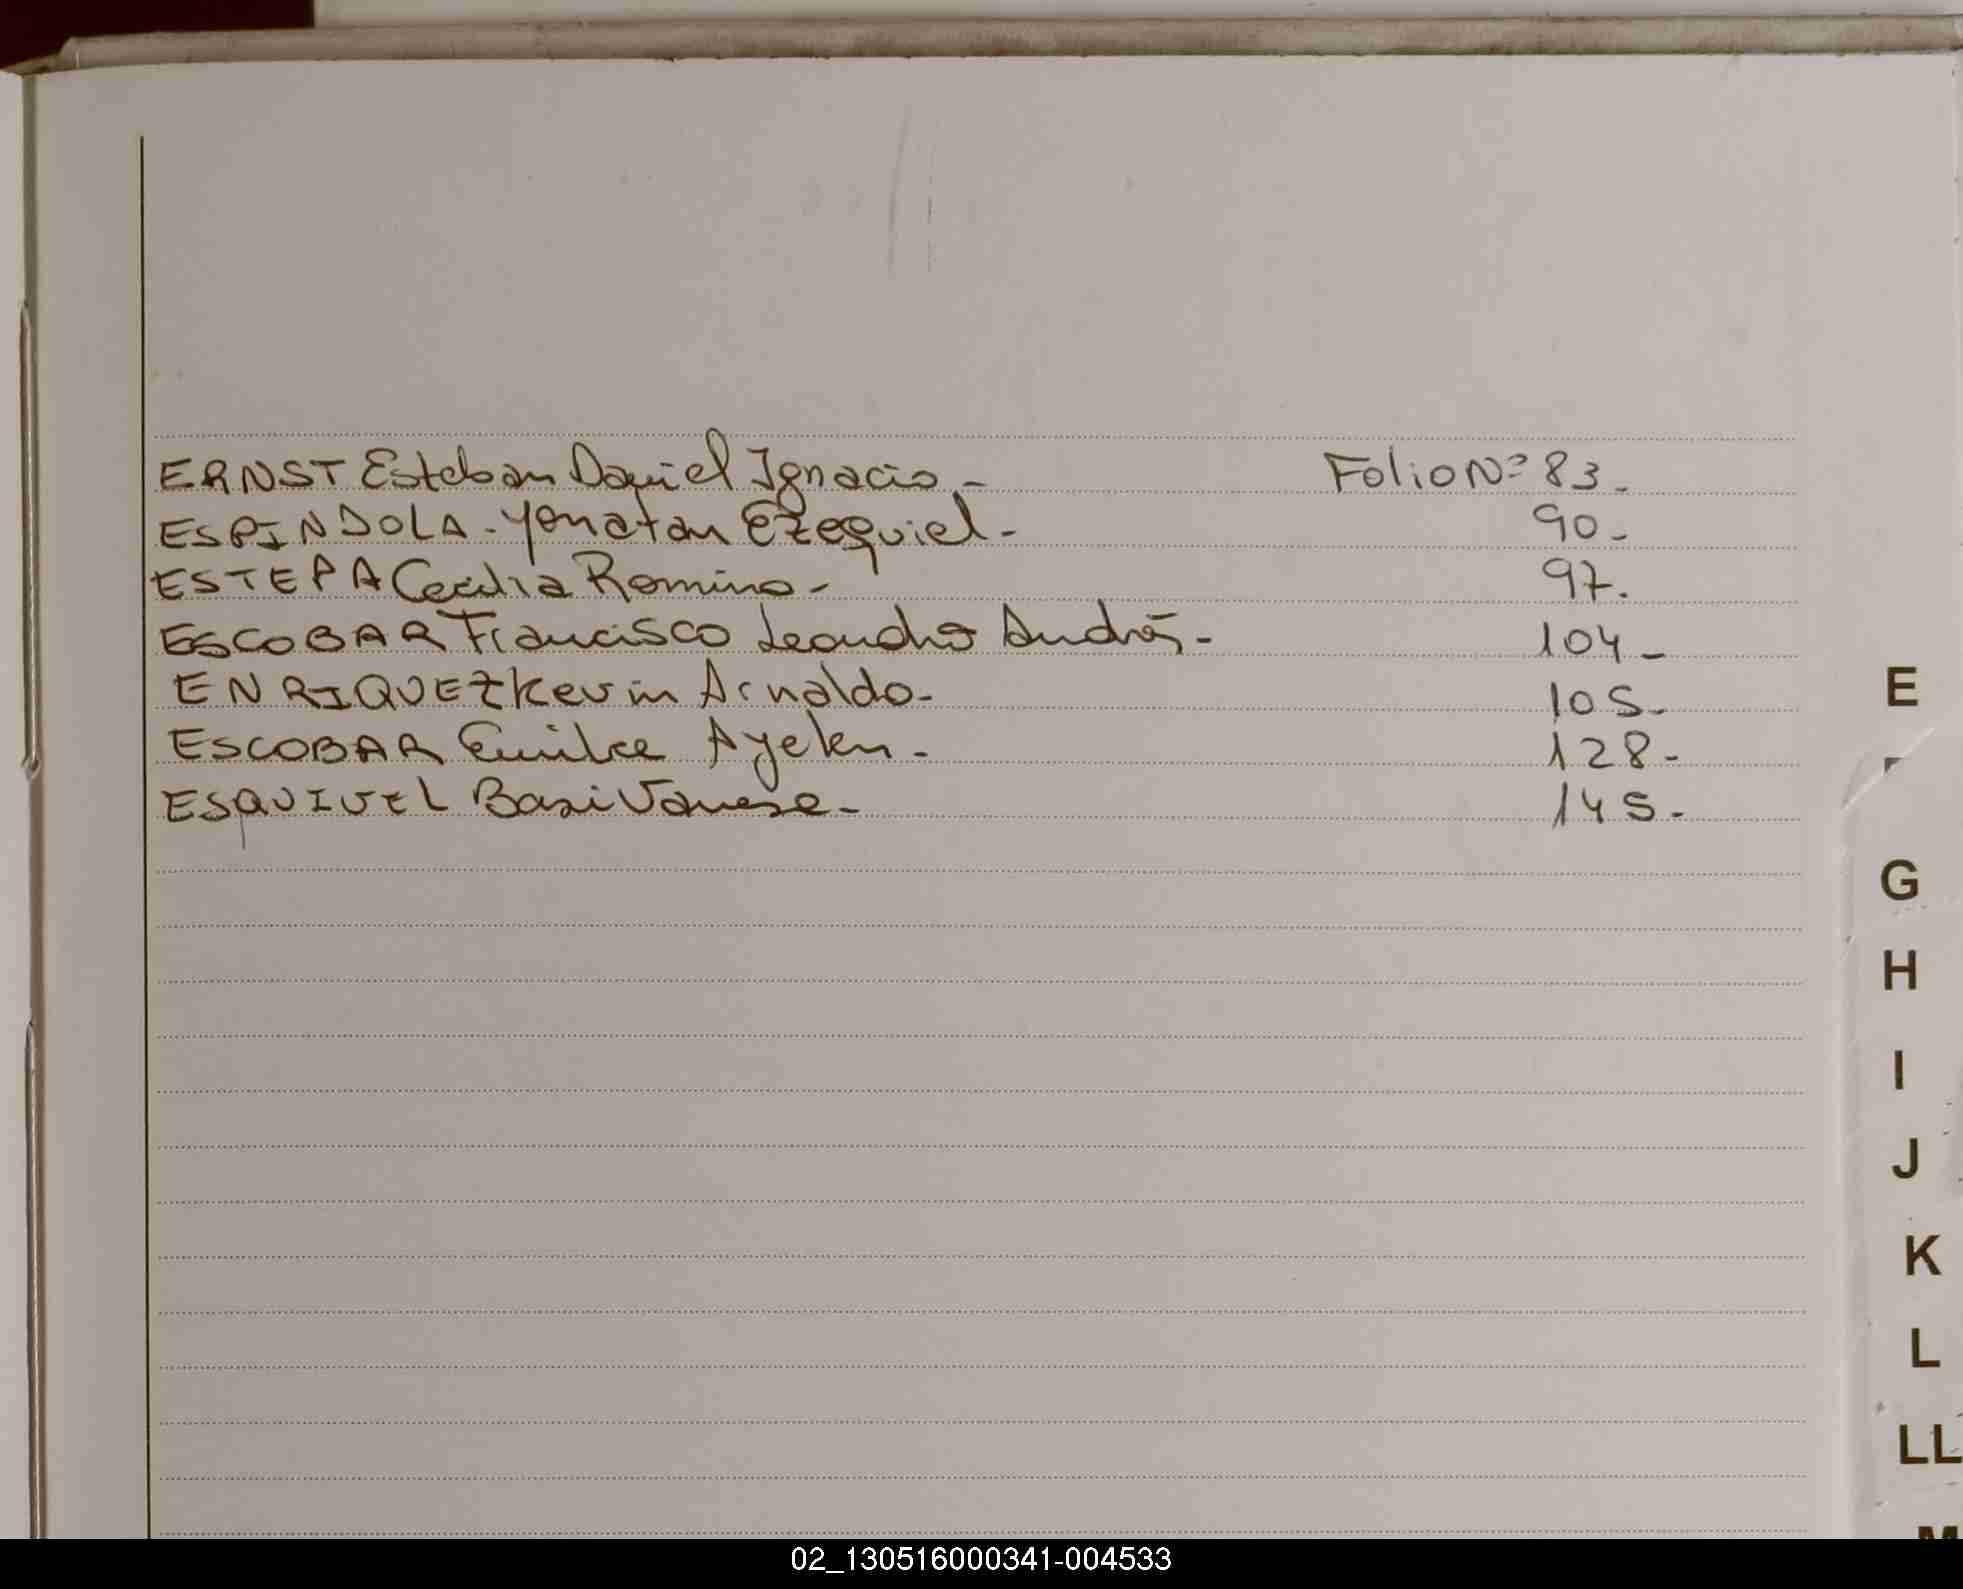 ERNST Esteban Daniel Ignacio - Folio Nº 83 -
ESPINDOLA - Yonatan Ezequiel - 90 -
ESTEPA Cecilia Romina - 97.
ESCOBAR Francisco Leandro Andrés - 104 -
ENRIQUEZ Kevin Arnaldo - 105 -
ESCOBAR Emilce Ayelen - 128 -
ESQUIVEL Vanesa - 145 -
E
G
H
I
J
K
L
LL
M
02_130516000341-004533